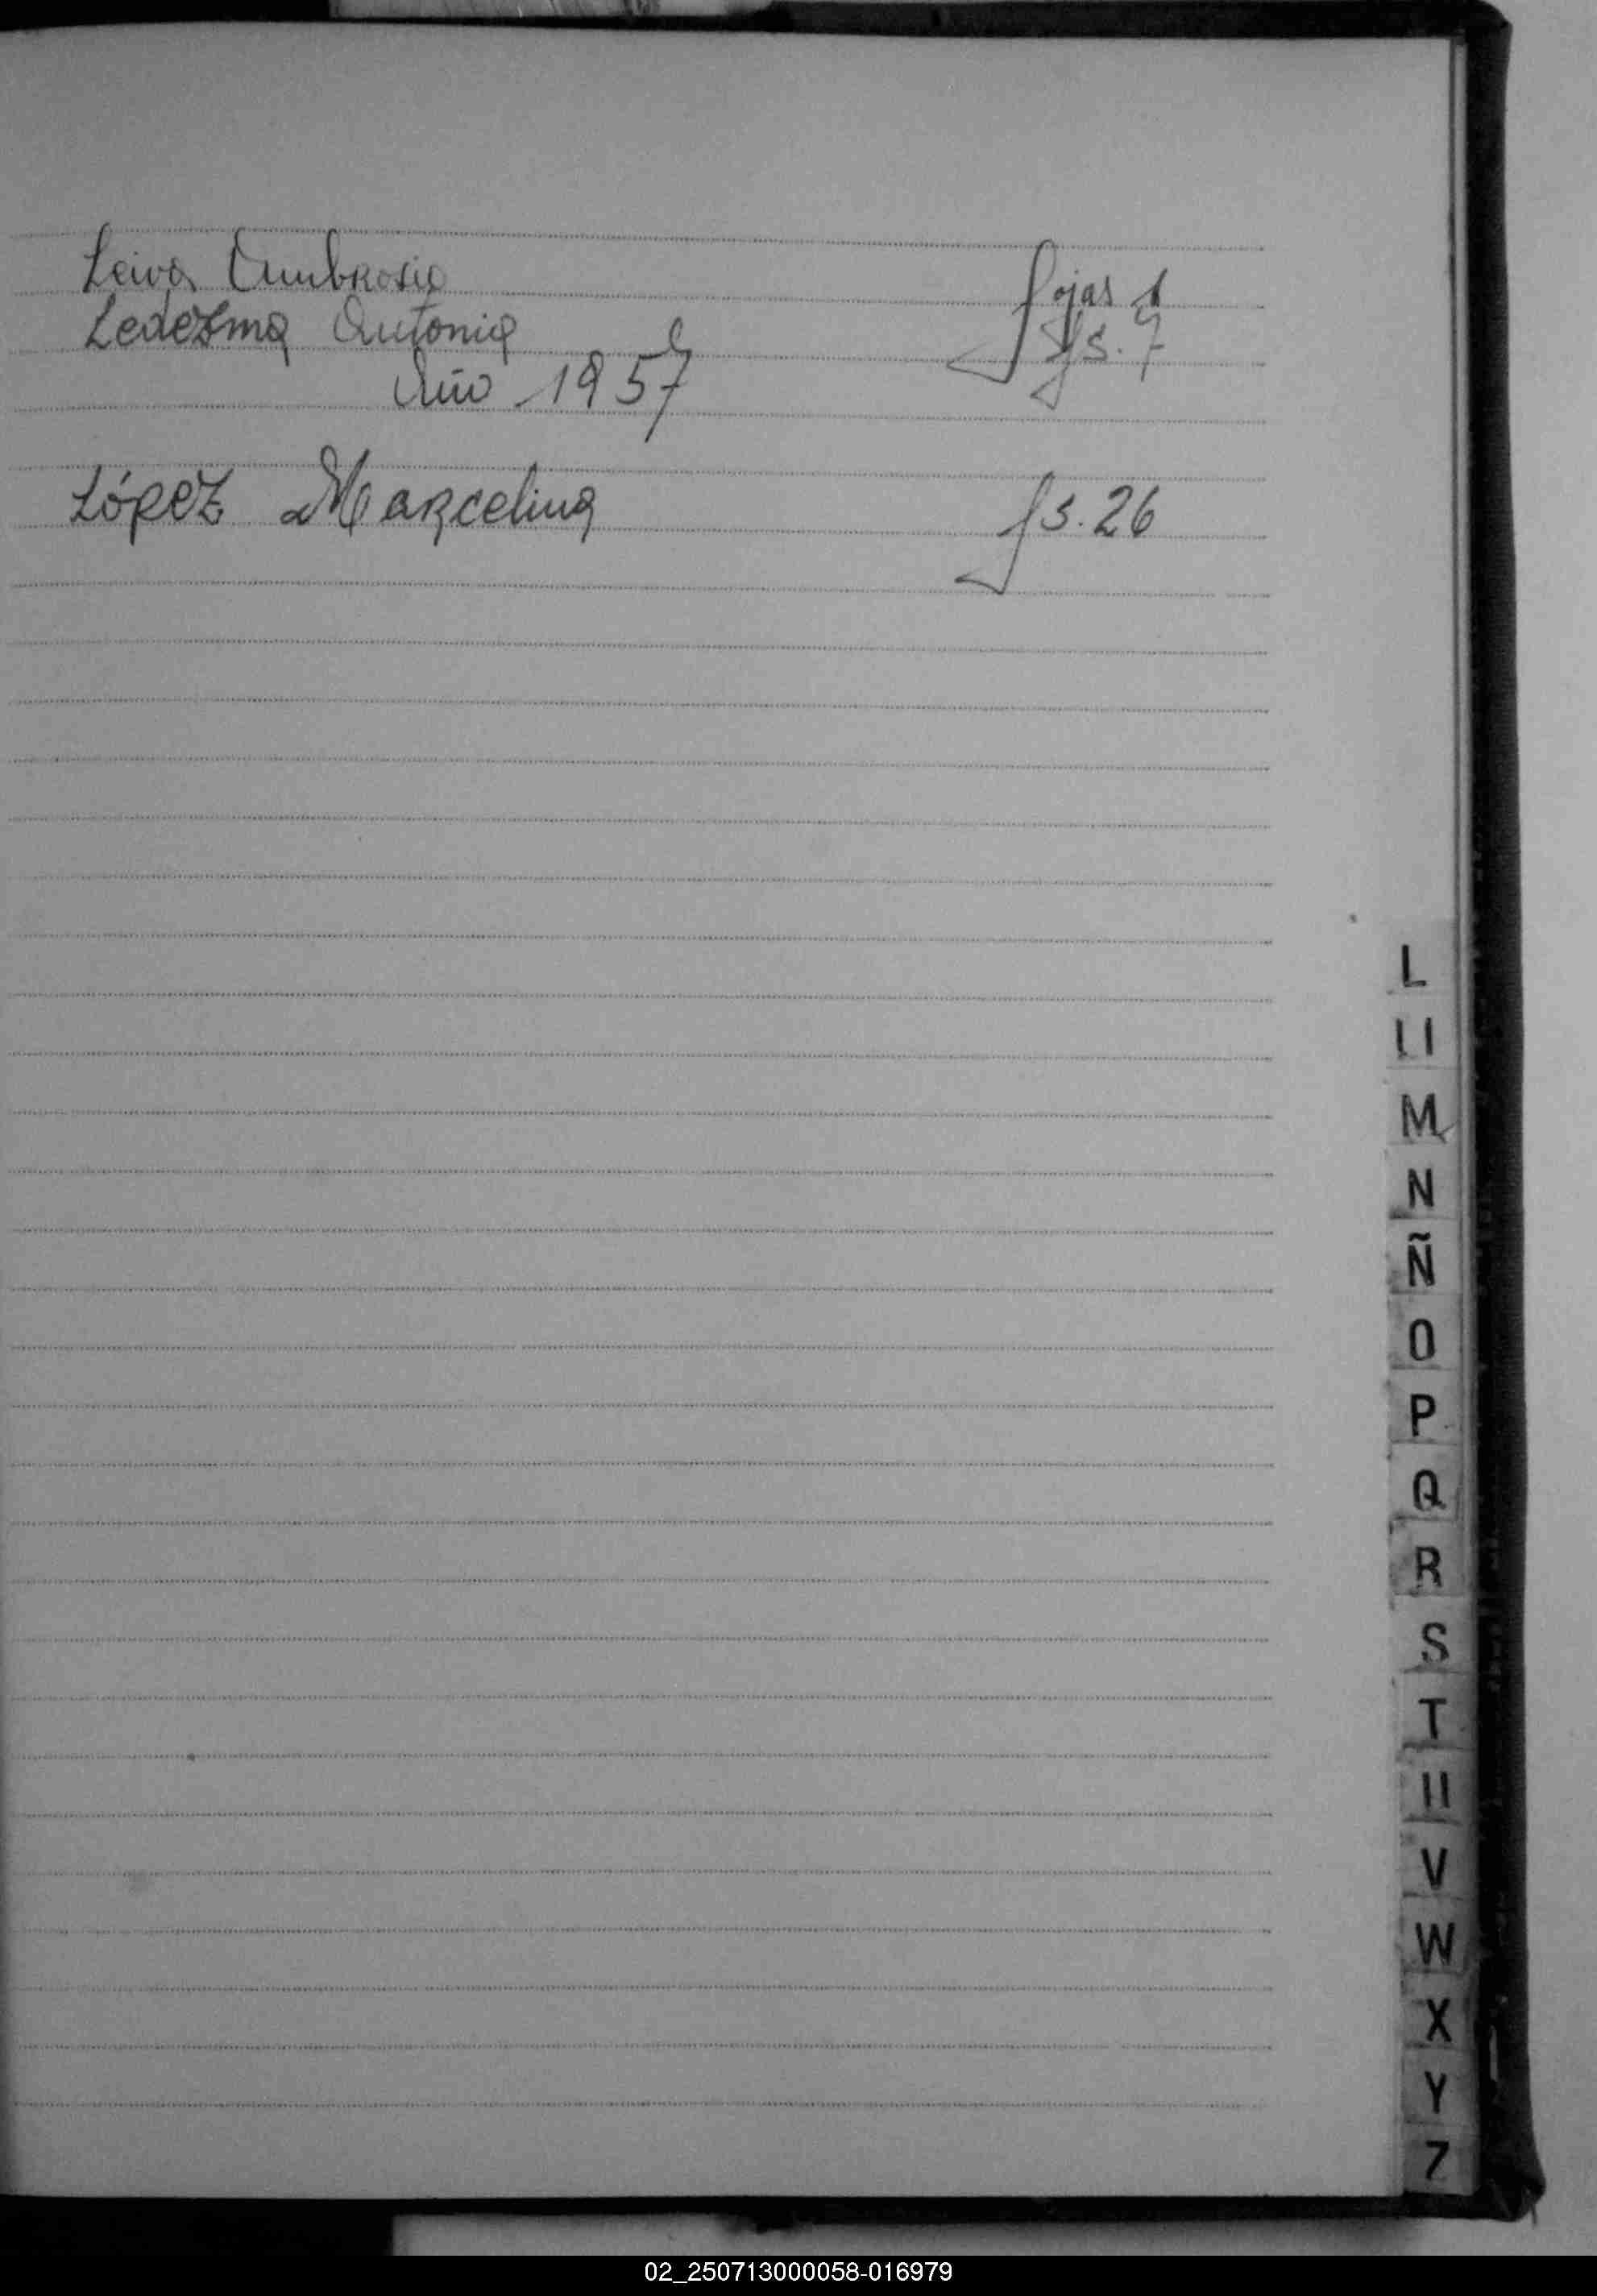 Leiva Ambrosia fojas 1
Ledezma Antonia fs. 7
Año 1957
López Marcelina fs. 26
L
Ll
M
N
Ñ
O
P
Q
R
S
T
U
V
W
X
Y
Z
02_250713000058-016979